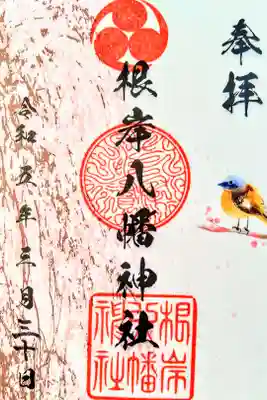 奉拝
根岸八幡神社
根岸
八幡
神社
令和五年三月三十日